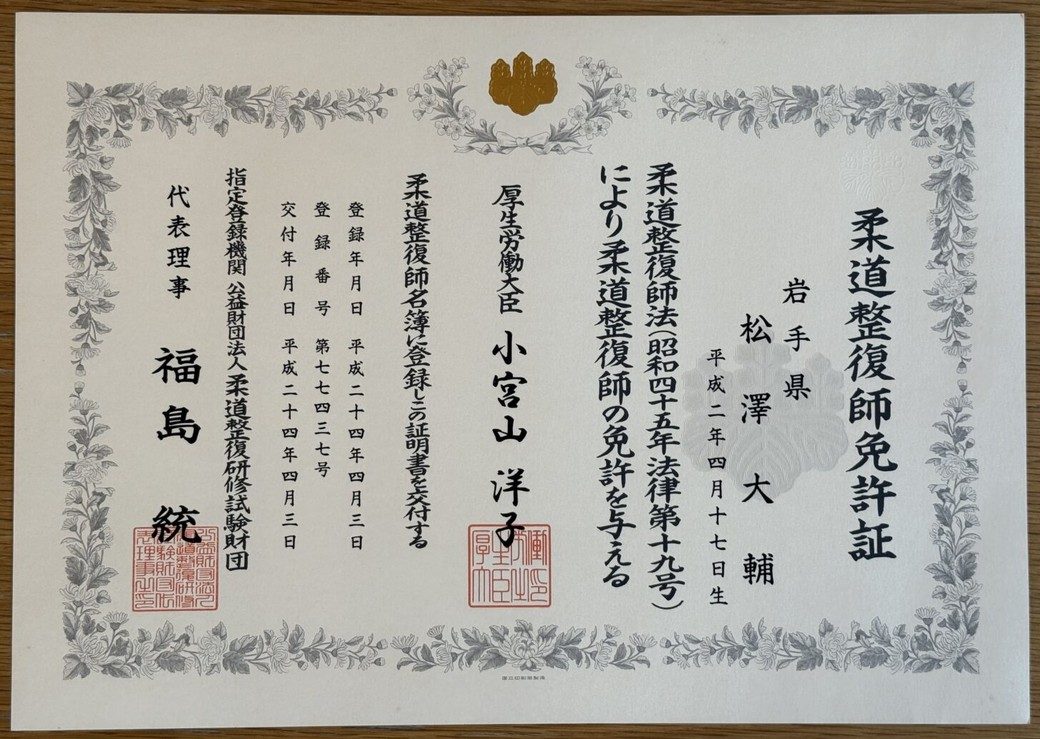 柔道整復師免許証
岩手県
松澤大輔
平成二年四月十七日生
柔道整復師法(昭和四十五年法律第十九号)
により柔道整復師の免許を与える
厚生労働大臣 小宮山 洋子
柔道整復師名簿に登録しこの証明書を交付する
登録年月日 平成二十四年四月三日
登録番号 第七七四三七号
交付年月日 平成二十四年四月三日
指定登録機関 公益財団法人 柔道整復研修試験財団
代表理事 福島 統
国立印刷局製造